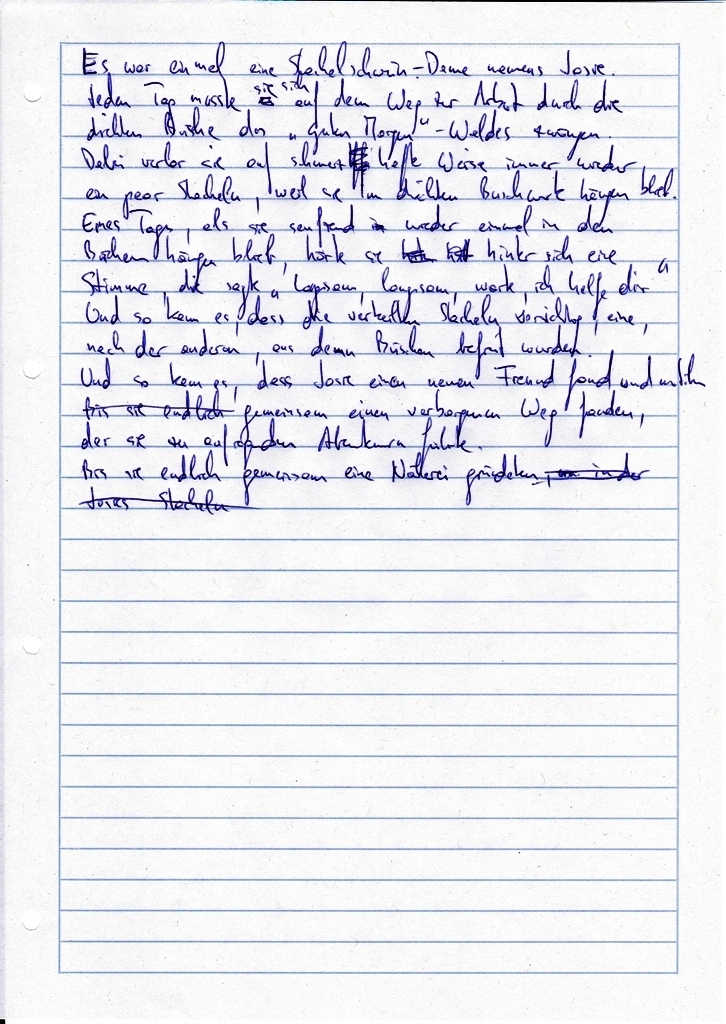 Es war einmal eine Stachelschwein-Dame namens Josie.
Jeden Tag musste sie sich auf dem Weg zur Arbeit durch die
dichten Büsche des „Guten Morgen"-Waldes zwängen.
Dabei verlor sie auf schmerzhafte Weise immer wieder
ein paar Stacheln, weil sie im dichten Buschwerk hängen blieb.
Eines Tages, als sie seufzend wieder einmal in den
Büschen hängen blieb, hörte sie hinter sich eine
Stimme, die sagte „Langsam, langsam, warte, ich helfe dir"
Und so kam es, dass die verkeilten Stacheln vorsichtig, eine,
nach der anderen, aus denn Büschen befreit wurden.
Und so kam es, dass Josie einen neuen Freund fand und
bis sie endlich gemeinsam einen verborgenen Weg fanden,
der sie zu aufregenden Abenteuern führte.
Bis sie endlich gemeinsam eine Näherei gründeten, in der
Josies Stacheln